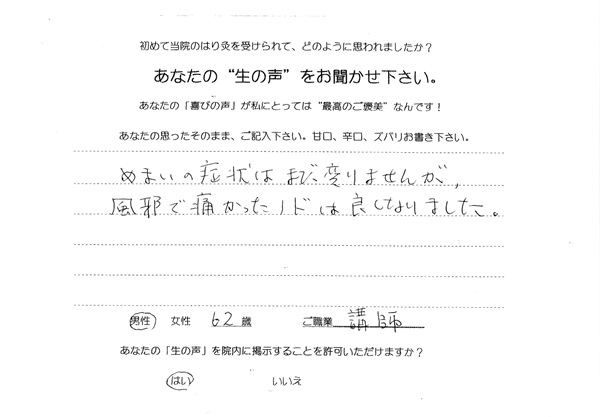 初めて当院のはり灸を受けられて、どのように思われましたか？
あなたの“生の声”をお聞かせ下さい。
あなたの「喜びの声」が私にとっては“最高のご褒美”なんです！
あなたの思ったそのまま、ご記入下さい。甘口、辛口、ズバリお書き下さい。
めまいの症状はまだ変りませんが、
風邪で痛かったノドは良くなりました。
男性 女性 62 歳 ご職業 講師
あなたの「生の声」を院内に掲示することを許可いただけますか？
はい いいえ